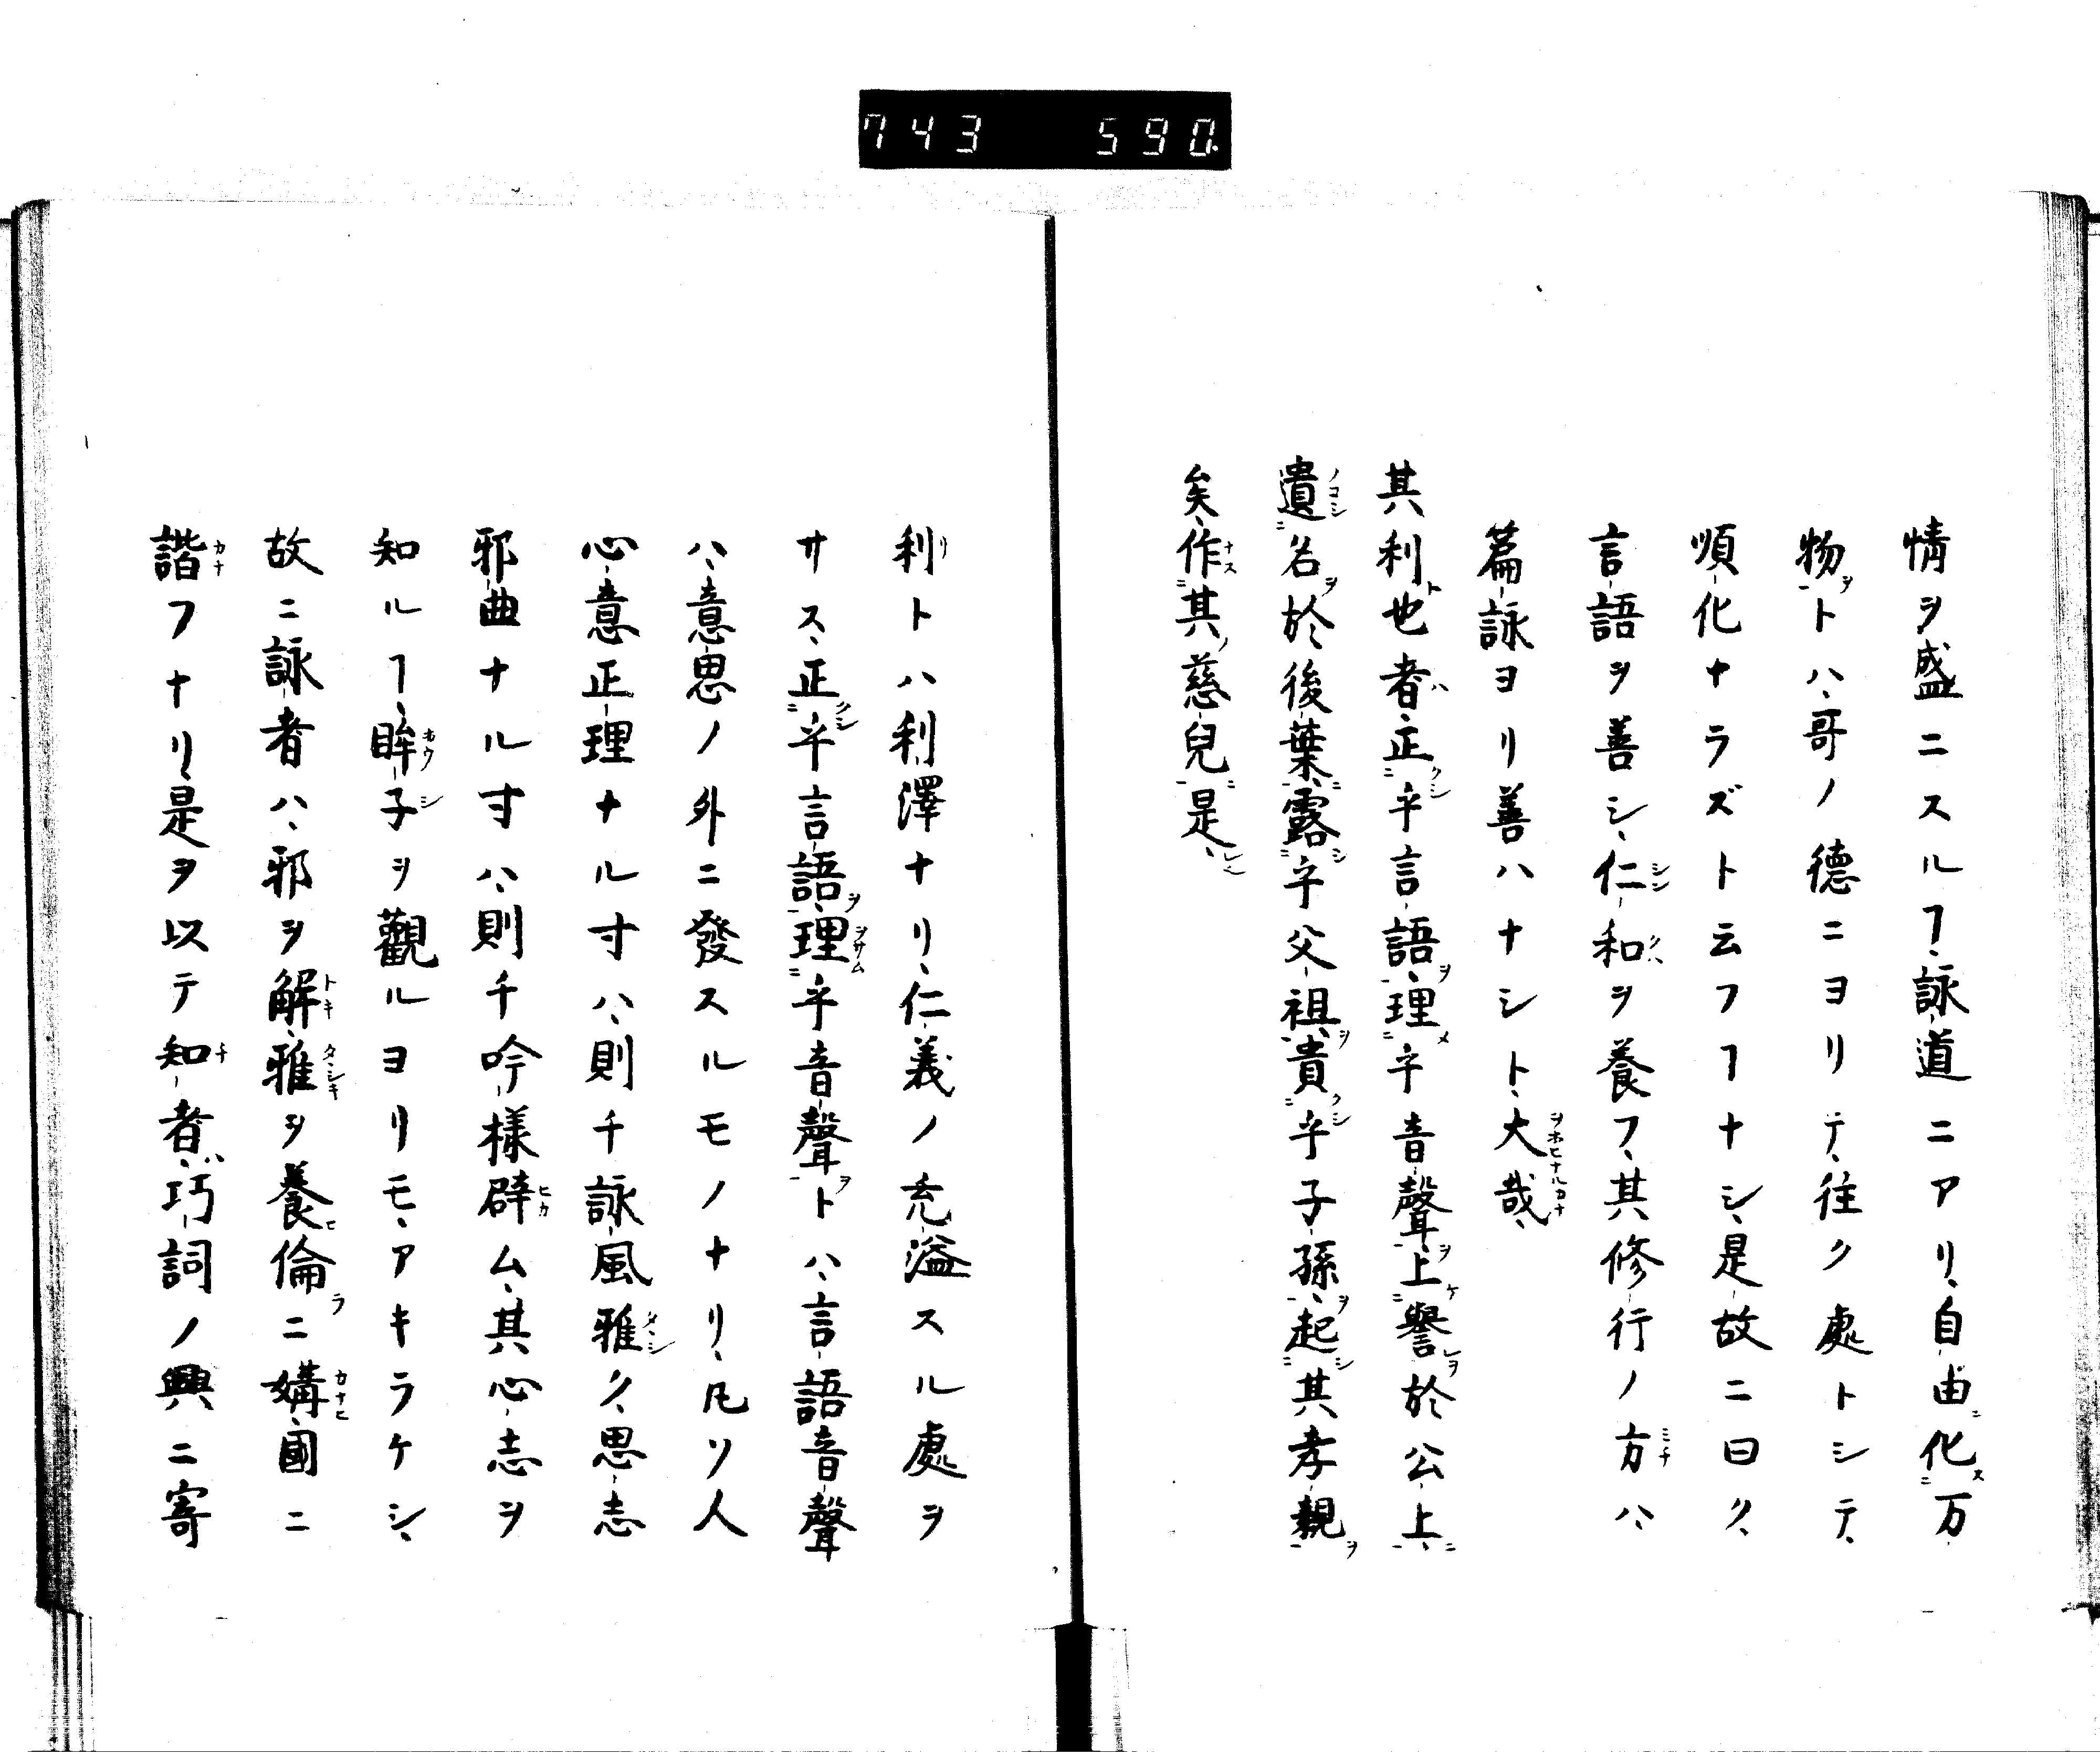 743 590
情ヲ盛ニスルヿ、詠道ニアリ、自由化万
物トハ、哥ノ德ニヨリテ、往ク處トシテ、
順化ナラズト云フヿナシ、是故ニ曰ク、
言語ヲ善シ、仁和ヲ養フ、其修行ノ方ハ、
篇詠ヨリ善ハナシト、大哉、
其利也者、正乎言語、理乎音聲、上譽於公上、
遺名於後葉、露乎父祖、貴乎子孫、起其孝親
矣、作其慈兒是、
利トハ利澤ナリ、仁義ノ充溢スル處ヲ
サス、正乎言語、理乎音聲トハ、言語音聲
ハ、意思ノ外ニ發スルモノナリ、凡ソ人
心意正理ナル寸ハ、則チ詠風雅ク、思志
邪曲ナル寸ハ、則チ吟様辟ム、其心志ヲ
知ルヿ、眸子ヲ觀ルヨリモ、アキラケシ、
故ニ詠者ハ、邪ヲ解、雅ヲ養、倫ニ媾、國ニ
諧フナリ、是ヲ以テ知者、巧詞ノ興ニ寄